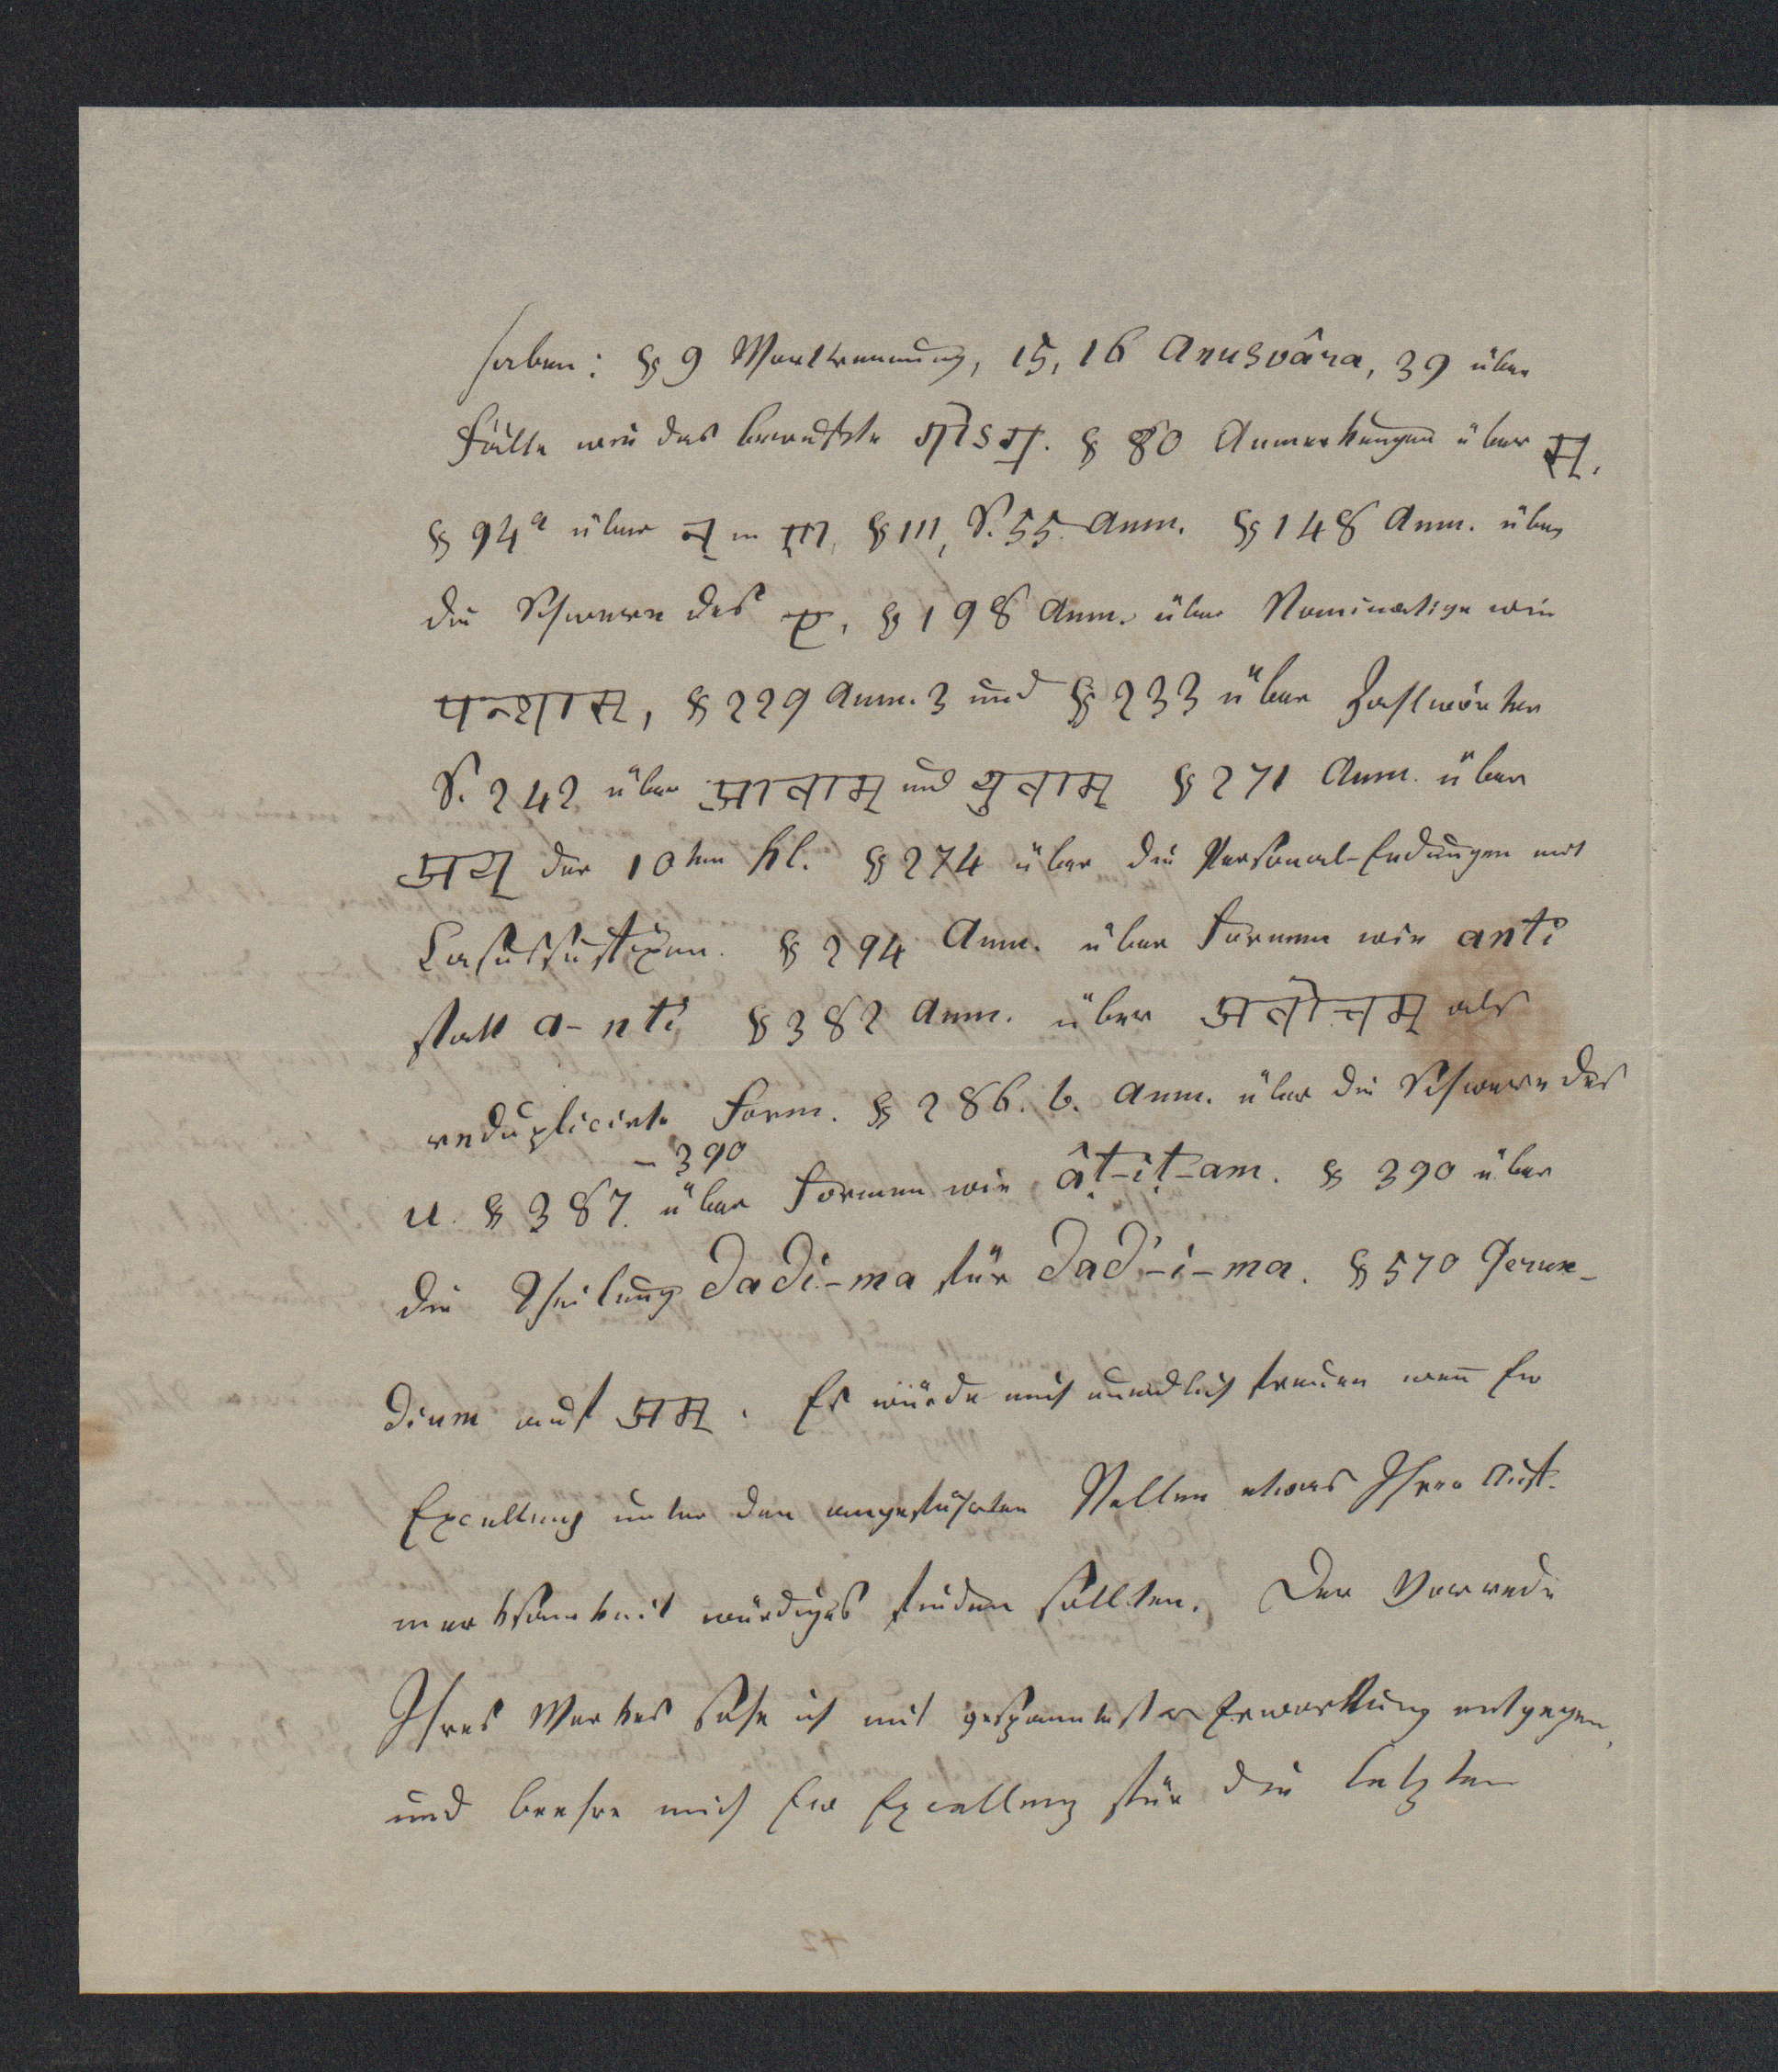 haben: § 9 Worttrennung, 15, 16 Anusvâra, 39 über
Fälle wie das bewußte गोऽग्. § 80 Anmerkungen über स्,
§ 94ᵃ über न् in ण्, § 111, S. 55. Anm. § 148 Anm. über
die Schwere des ए, § 198 Anm. über Nominative wie
पन्थास्, § 229 Anm. 3 und § 233 über Zahlwörter
S. 242 über आवाम् und युवाम् § 271 Anm. über
अय् der 10ten Kl. § 274 über die Personal-Endungen mit
Casussuffixen. § 294 Anm. über Formen wie anti
statt a-nti, § 382 Anm. über अवोचम् als
reduplicirte Form. § 286. b. Anm. über die Schwere des
u. § 387.-390 über Formen wie âṭ-iṭ-am. § 390 über
die Theilung dadi-ma für dad-i-ma. § 570 Gerun-
dium auf अम्. Es würde mich unendlich freuen wen̄ Ew
Excellenz unter den angeführten Stellen etwas Ihrer Auf-
merksamkeit würdiges finden sollten. Der Vorrede
Ihres Werkes sehe ich mit gespanntester Erwartung entgegen,
und beehre mich Ew Excellenz für die letzten